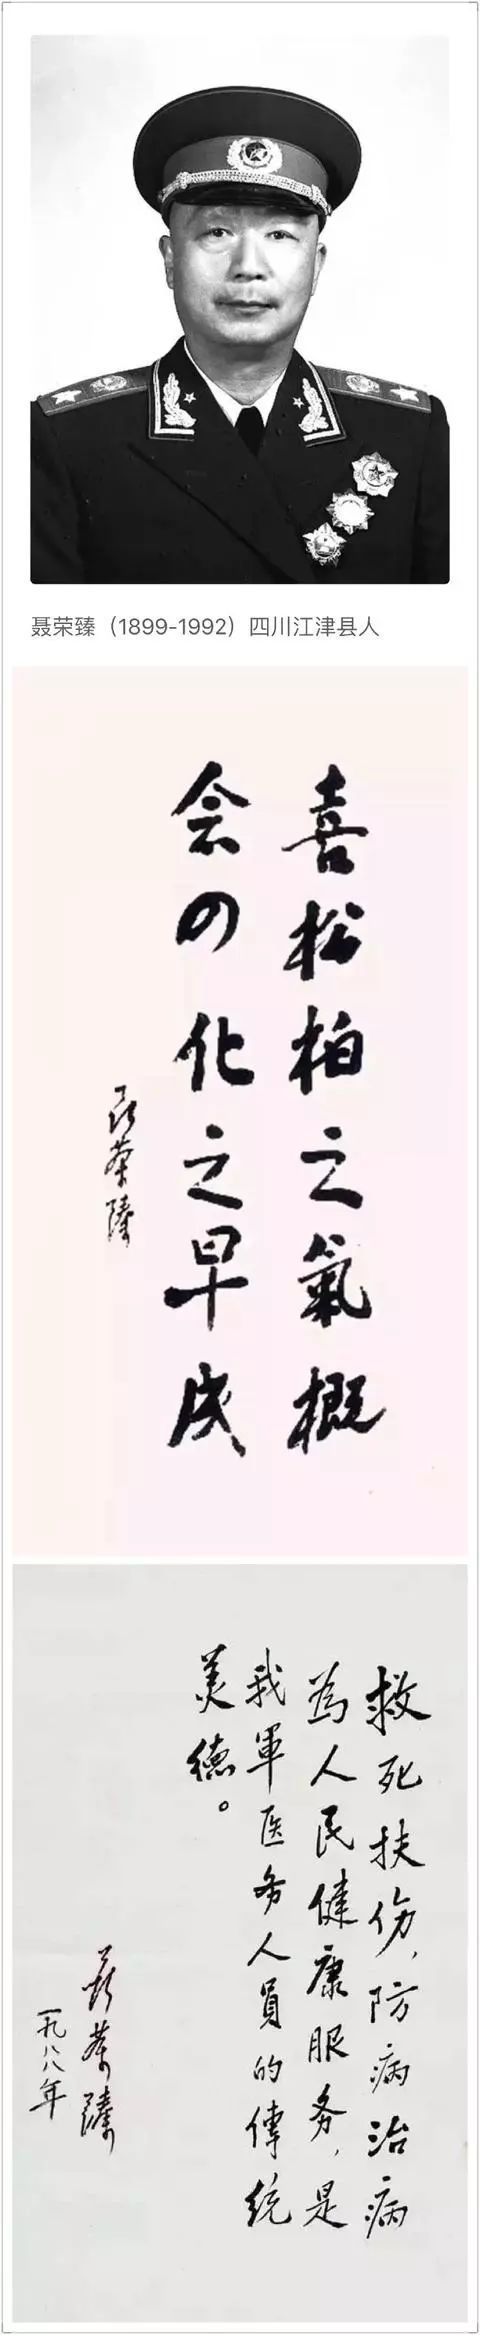 聂荣臻（1899-1992）四川江津县人
喜松柏之氣概
会四化之早成
聂荣臻
救死扶伤，防病治病
为人民健康服务，是
我軍医务人員的傳统
美德。
聂荣臻
一九八八年